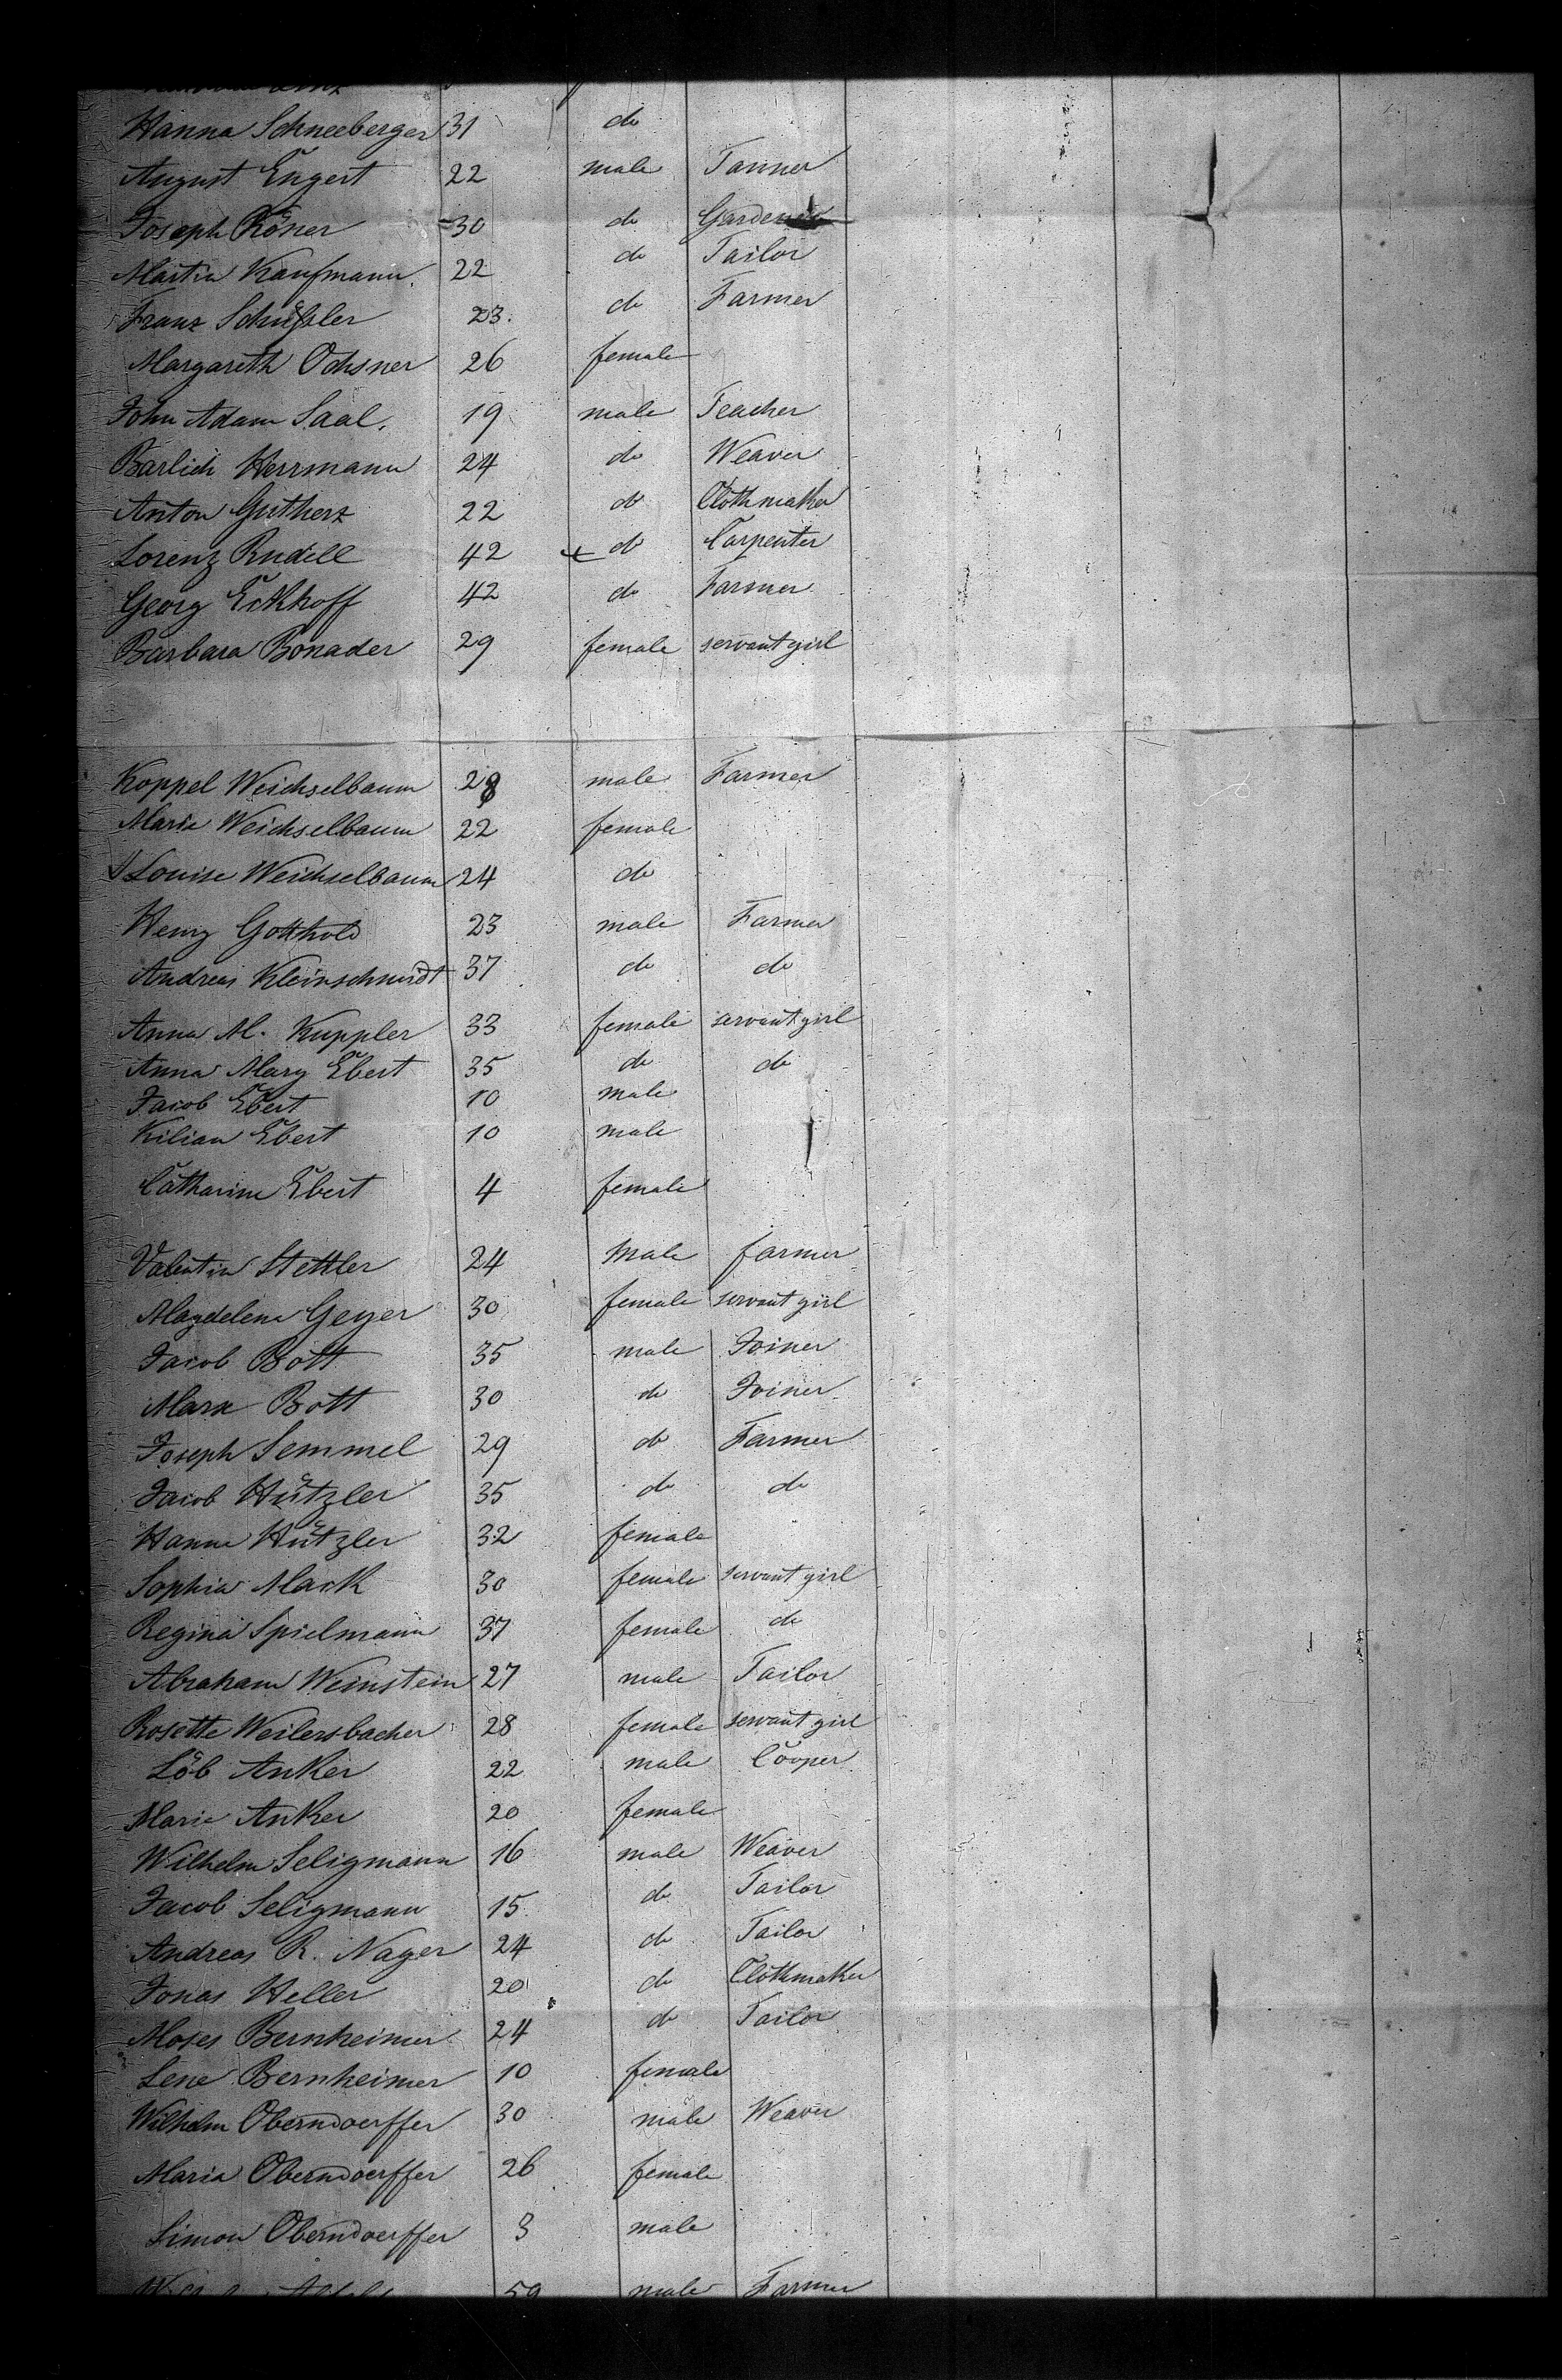 Hanna Schneeberger 31 do
August Engert 22 male Tanner
Joseph Röner 30 do Gardener
Martin Kaufmann 22 do Tailor
Franz Schüssler 23. do Farmer
Margareth Ochsner 26 female
John Adam Saal. 19 male Teacher
Barlich Herrmann 24 do Weaver
Anton Gutherz 22 do Clothmaker
Lorenz Rudell 42 do Carpenter
Georg Eckhoff 42 do Farmer
Barbara Bonader 29 female servant girl
Koppel Weichselbaum 28 male Farmer
Marie Weichselbaum 22 female
Louise Weichselbaum 24 do
Henry Gotthold 23 male Farmer
Andreas Kleinschmidt 37 do do
Anna M. Kuppler 33 female servant girl
Anna Mary Ebert 35 do do
Jacob Ebert 10 male
Kilian Ebert 10 male
Catharine Ebert 4 female
Valentin Stettler 24 male farmer
Magdelena Geyer 30 female servant girl
Jacob Bott 35 male Joiner
Marx Bott 30 do Joiner
Joseph Semmel 29 do Farmer
Jacob Hützler 35 do do
Hanna Hützler 32 female
Sophia Mack 30 female servant girl
Regina Spielmann 37 female do
Abraham Weinstein 27 male Tailor
Rosette Weilersbacher 28 female servant girl
Löb Anker 22 male Cooper
Marie Anker 20 female
Wilhelm Seligmann 16 male Weaver
Jacob Seligmann 15 do Tailor
Andreas R. Nager 24 do Tailor
Jonas Heller 20 do Clothmaker
Moses Bernheimer 24 do Tailor
Lene Bernheimer 10 female
Wilhelm Oberndoerffer 30 male Weaver
Maria Oberndoerffer 26 female
Simon Oberndoerffer 3 male
59 male Farmer